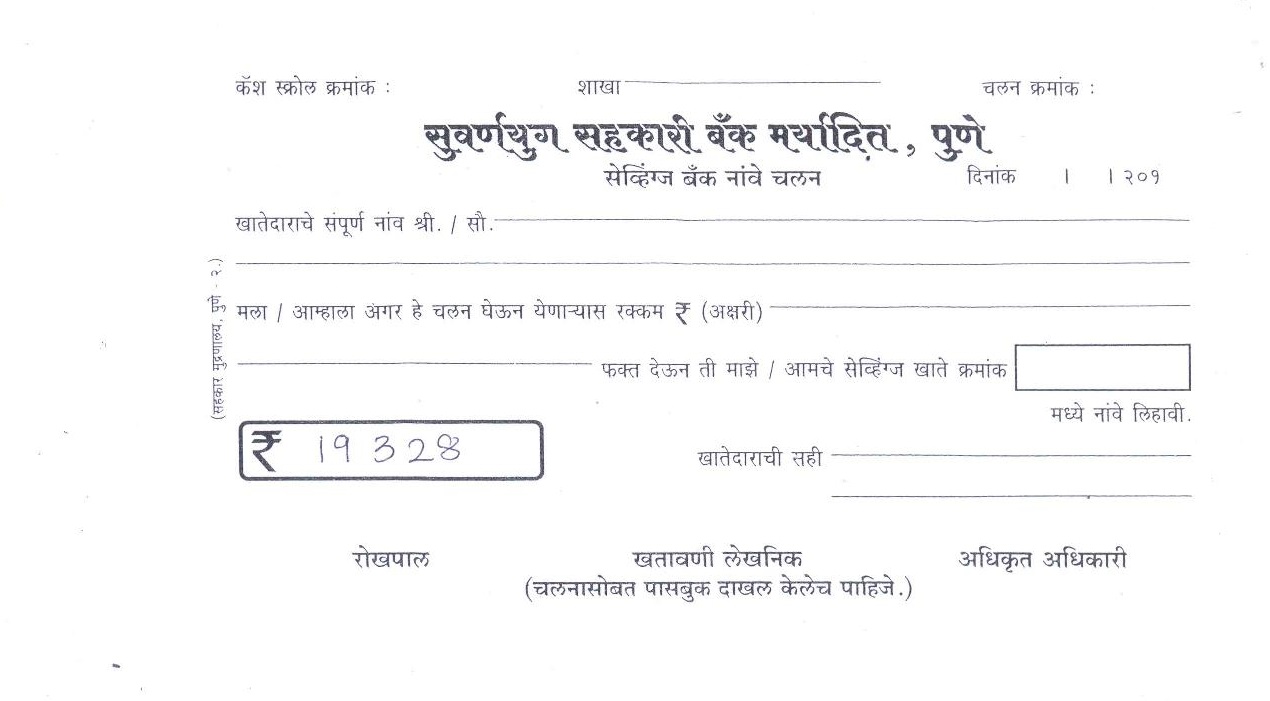 कॅश स्क्रोल क्रमांक : शाखा चलन क्रमांक :
सुवर्णयुग सहकारी बँक मर्यादित, पुणे
सेव्हिंग्ज बँक नांवे चलन दिनांक । । २०१
खातेदाराचे संपूर्ण नांव श्री. / सौ.
मला / आम्हाला अगर हे चलन घेऊन येणाऱ्यास रक्कम ₹ (अक्षरी)
फक्त देऊन ती माझे / आमचे सेव्हिंग्ज खाते क्रमांक
मध्ये नांवे लिहावी.
₹ 19328 खातेदाराची सही
रोखपाल खतावणी लेखनिक अधिकृत अधिकारी
(चलनासोबत पासबुक दाखल केलेच पाहिजे.)
(सहकार मुद्रणालय, पुणे - २.)